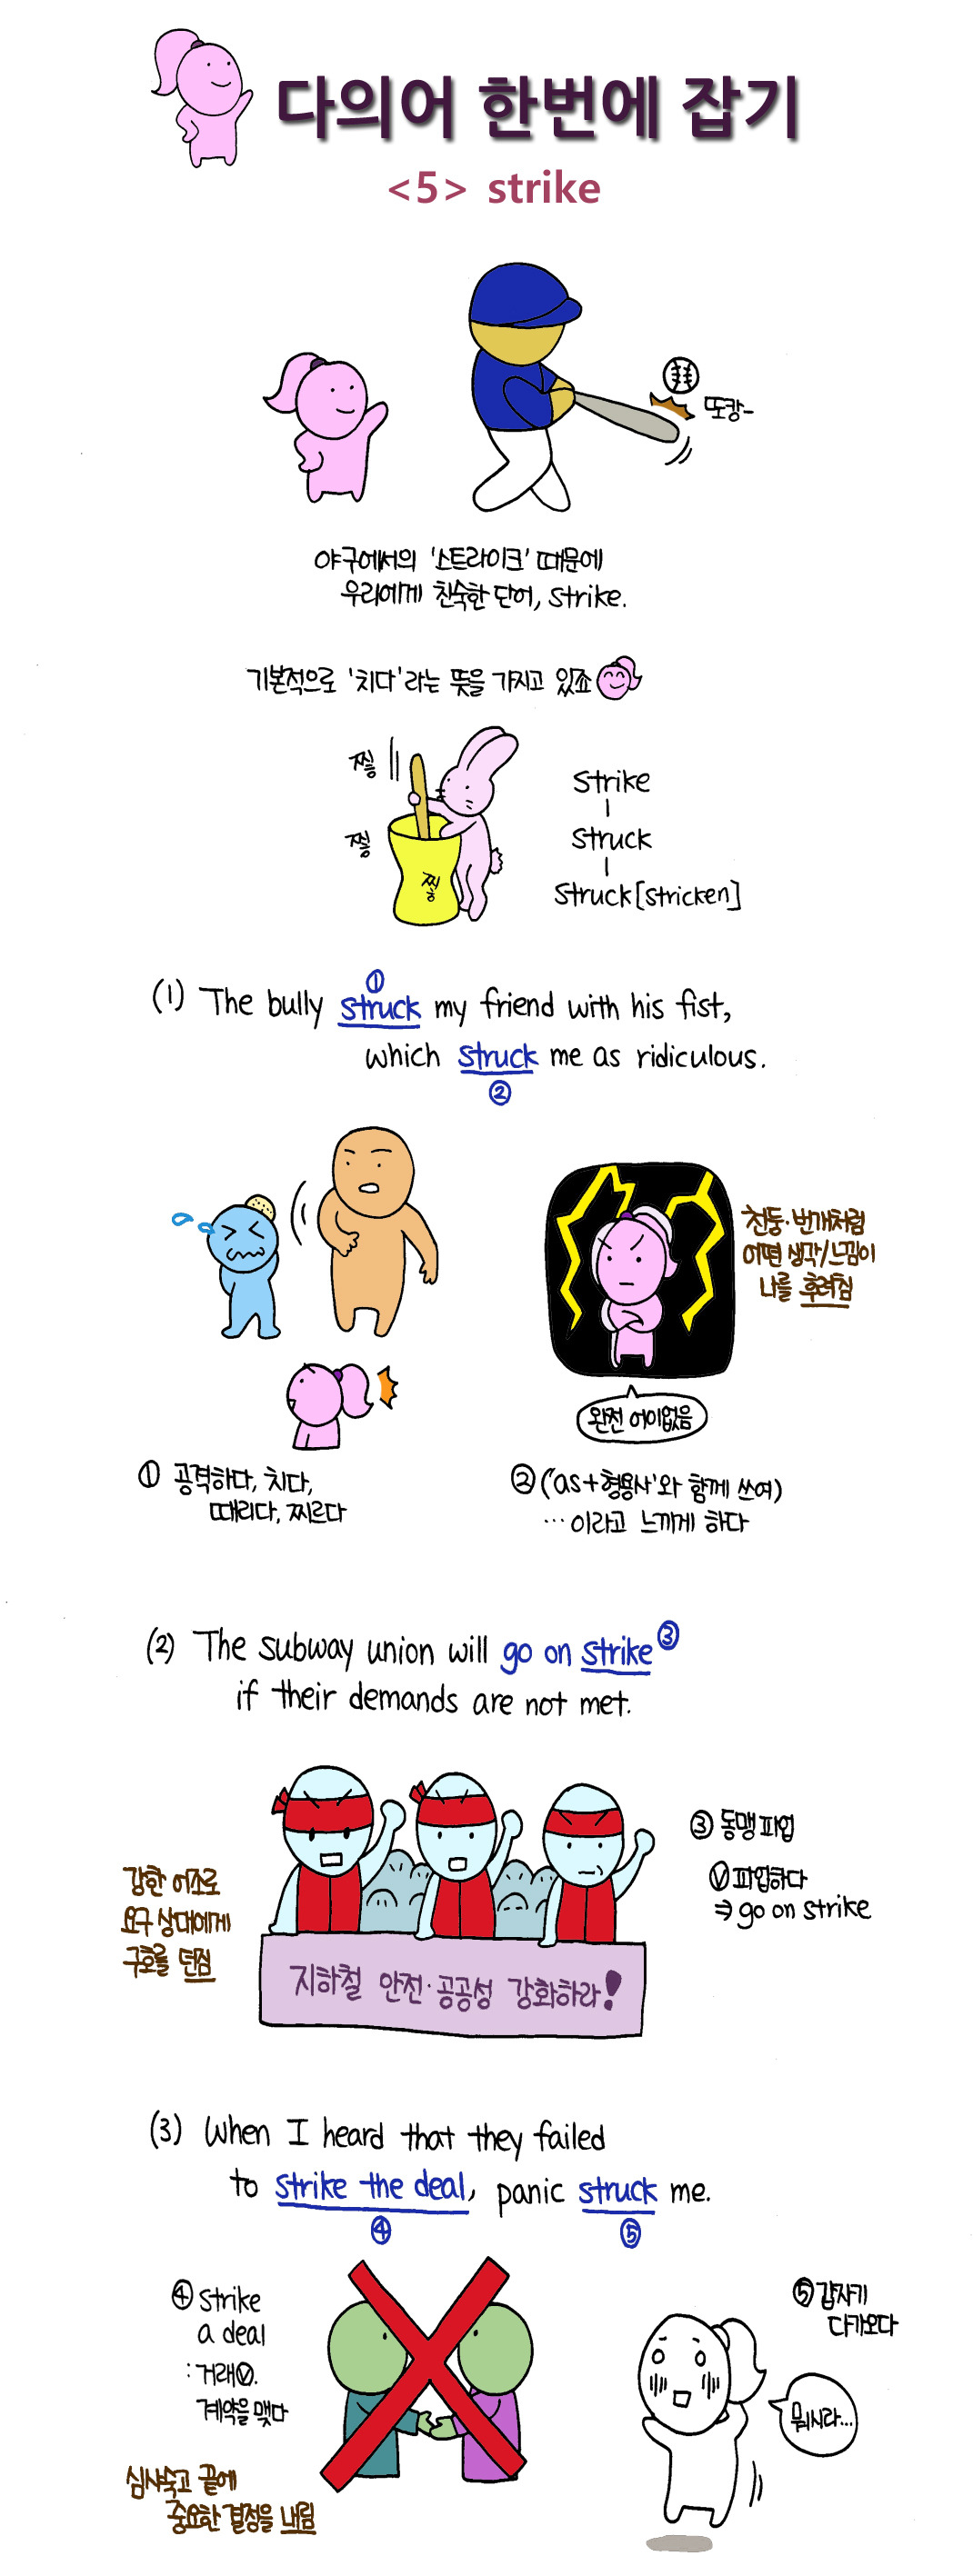 다의어 한번에 잡기
<5> strike
또캉-
야구에서의 '스트라이크' 때문에
우리에게 친숙한 단어, strike.
기본적으로 '치다'라는 뜻을 가지고 있죠
찧
찧
찧
strike
struck
struck[stricken]
(1) The bully struck my friend with his fist,
①
which struck me as ridiculous.
②
천둥·번개처럼
어떤 생각/느낌이
나를 후려침
완전 어이없음
① 공격하다, 치다,
때리다, 찌르다
② ('as+형용사'와 함께 쓰여)
…이라고 느끼게 하다
(2) The subway union will go on strike③
if their demands are not met.
강한 어조로
요구 상대에게
구호를 던짐
③ 동맹 파업
ⓥ 파업하다
⇒ go on strike
지하철 안전·공공성 강화하라!
(3) When I heard that they failed
to strike the deal, panic struck me.
④ ⑤
④ strike
a deal
: 거래ⓥ.
계약을 맺다
심사숙고 끝에
중요한 결정을 내림
⑤ 갑자기
다가오다
뭐시라...